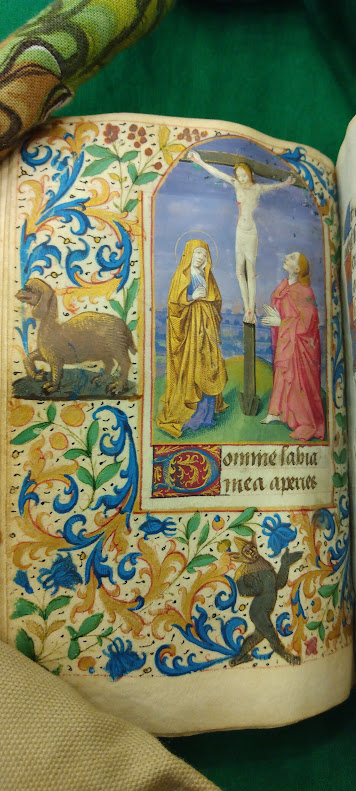 Domine labia
mea aperies